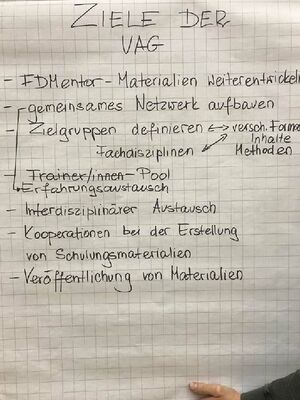 ZIELE DER
VAG
- FDMentor - Materialien weiterentwickeln
- gemeinsames Netzwerk aufbauen
- Zielgruppen definieren ↔ versch. Formate
Inhalte
Fachdisziplinen ↔ Methoden
- Trainer/innen-Pool
Erfahrungsaustausch
- Interdisziplinärer Austausch
- Kooperationen bei der Erstellung
von Schulungsmaterialien
- Veröffentlichung von Materialien